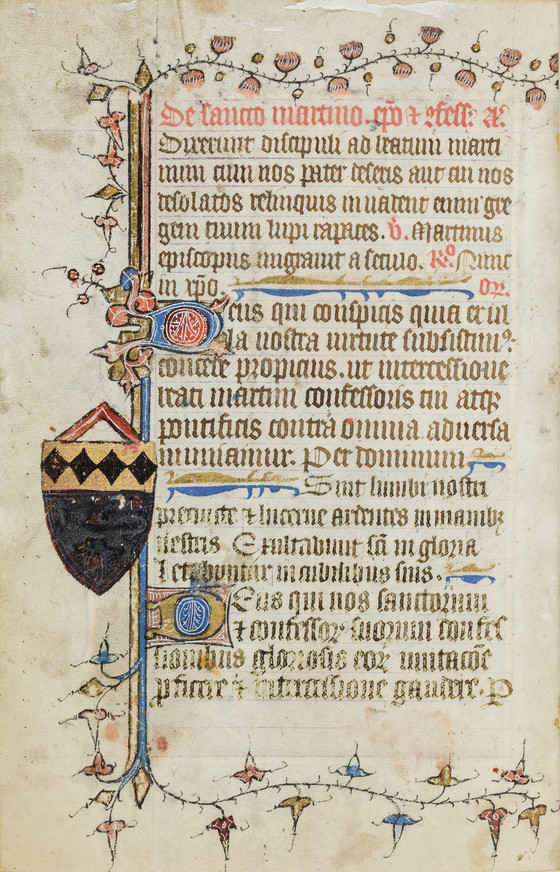 De sancto martino. epo & 9fess. A.
Dixerunt discipuli ad beatum marti
num cur nos pater deseris aut cui nos
desolatos relinquis inuadent enim gre
gem tuum lupi rapaces. V. Martinus
episcopus migrauit a seculo. R. Nunc
in xpo or.
Deus qui conspicis quia ex ul
la nostra uirtute subsistim9.
concede propicius. ut intercessione
beati martini confessoris tui atqz
pontificis contra omnia aduersa
muniamur. Per dominum
Sint lumbi nostri
precincte & lucerne ardentes in manibz
uestris Exultabunt sci in gloria
Letabuntur in cubilibus suis.
Deus qui nos sanctorum
& confessor suorum confes
sionibus gloriosis eor imitacoe
pficere & intercessione gaudere. P